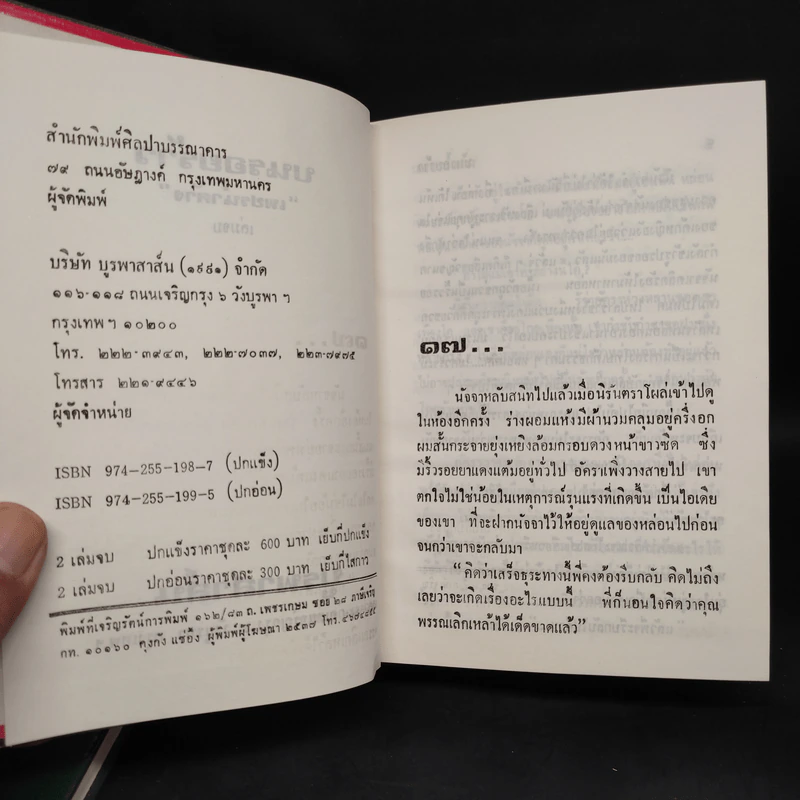 สำนักพิมพ์ศิลปาบรรณาคาร
๗๙ ถนนอัษฎางค์ กรุงเทพมหานคร
ผู้จัดพิมพ์
บริษัท บูรพาสาส์น (๑๙๙๑) จำกัด
๑๑๖-๑๑๘ ถนนเจริญกรุง ๖ วังบูรพา ฯ
กรุงเทพฯ ๑๐๒๐๐
โทร. ๒๒๒-๓๙๔๓, ๒๒๒-๗๐๓๗, ๒๒๓-๗๙๗๕
โทรสาร ๒๒๑-๙๔๔๖
ผู้จัดจำหน่าย
ISBN 974-255-198-7 (ปกแข็ง)
ISBN 974-255-199-5 (ปกอ่อน)
2 เล่มจบ ปกแข็งราคาชุดละ 600 บาท เย็บกี่ปกแข็ง
2 เล่มจบ ปกอ่อนราคาชุดละ 300 บาท เย็บกี่ไสกาว
พิมพ์ที่เจริญรัตน์การพิมพ์ ๑๖๒/๘๓ ถ. เพชรเกษม ซอย ๒๘ ภาษีเจริญ
กท. ๑๐๑๖๐ คุงกัง แซ่อึ้ง ผู้พิมพ์ผู้โฆษณา ๒๕๓๗
๑๗...
นัจจาหลับสนิทไปแล้วเมื่อนิรันตราโผล่เข้าไปดู
ในห้องอีกครั้ง ร่างผอมแห้งมีผ้านวมคลุมอยู่ครึ่งอก
ผมสั้นกระจายยุ่งเหยิงล้อมกรอบดวงหน้าขาวซีด ซึ่ง
มีริ้วรอยยาแดงแต้มอยู่ทั่วไป อัคราเพิ่งวางสายไป เขา
ตกใจไม่ใช่น้อยในเหตุการณ์รุนแรงที่เกิดขึ้น เป็นไอเดีย
ของเขา ที่จะฝากนัจจาไว้ให้อยู่ดูแลของหล่อนไปก่อน
จนกว่าเขาจะกลับมา
“คิดว่าเสร็จธุระทางนี้พี่คงต้องรีบกลับ คิดไม่ถึง
เลยว่าจะเกิดเรื่องอะไรแบบนี้ พี่ก็นอนใจคิดว่าคุณ
พรรณเลิกเหล้าได้เด็ดขาดแล้ว”